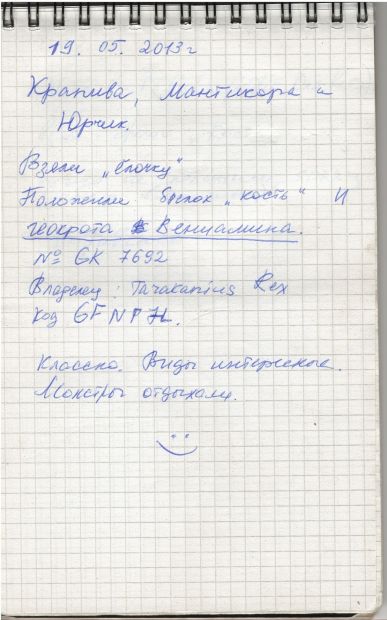 19. 05. 2013 г
Крапива, Мантикора и
Юрчик.
Взяли „ёлочку"
Положили брелок „кость" и
геокрота Вениамина.
№ GK 7692
Владелец: Tarakanius Rex
код GFNP7L.
Классно. Виды интересные.
Монстры отдыхали.